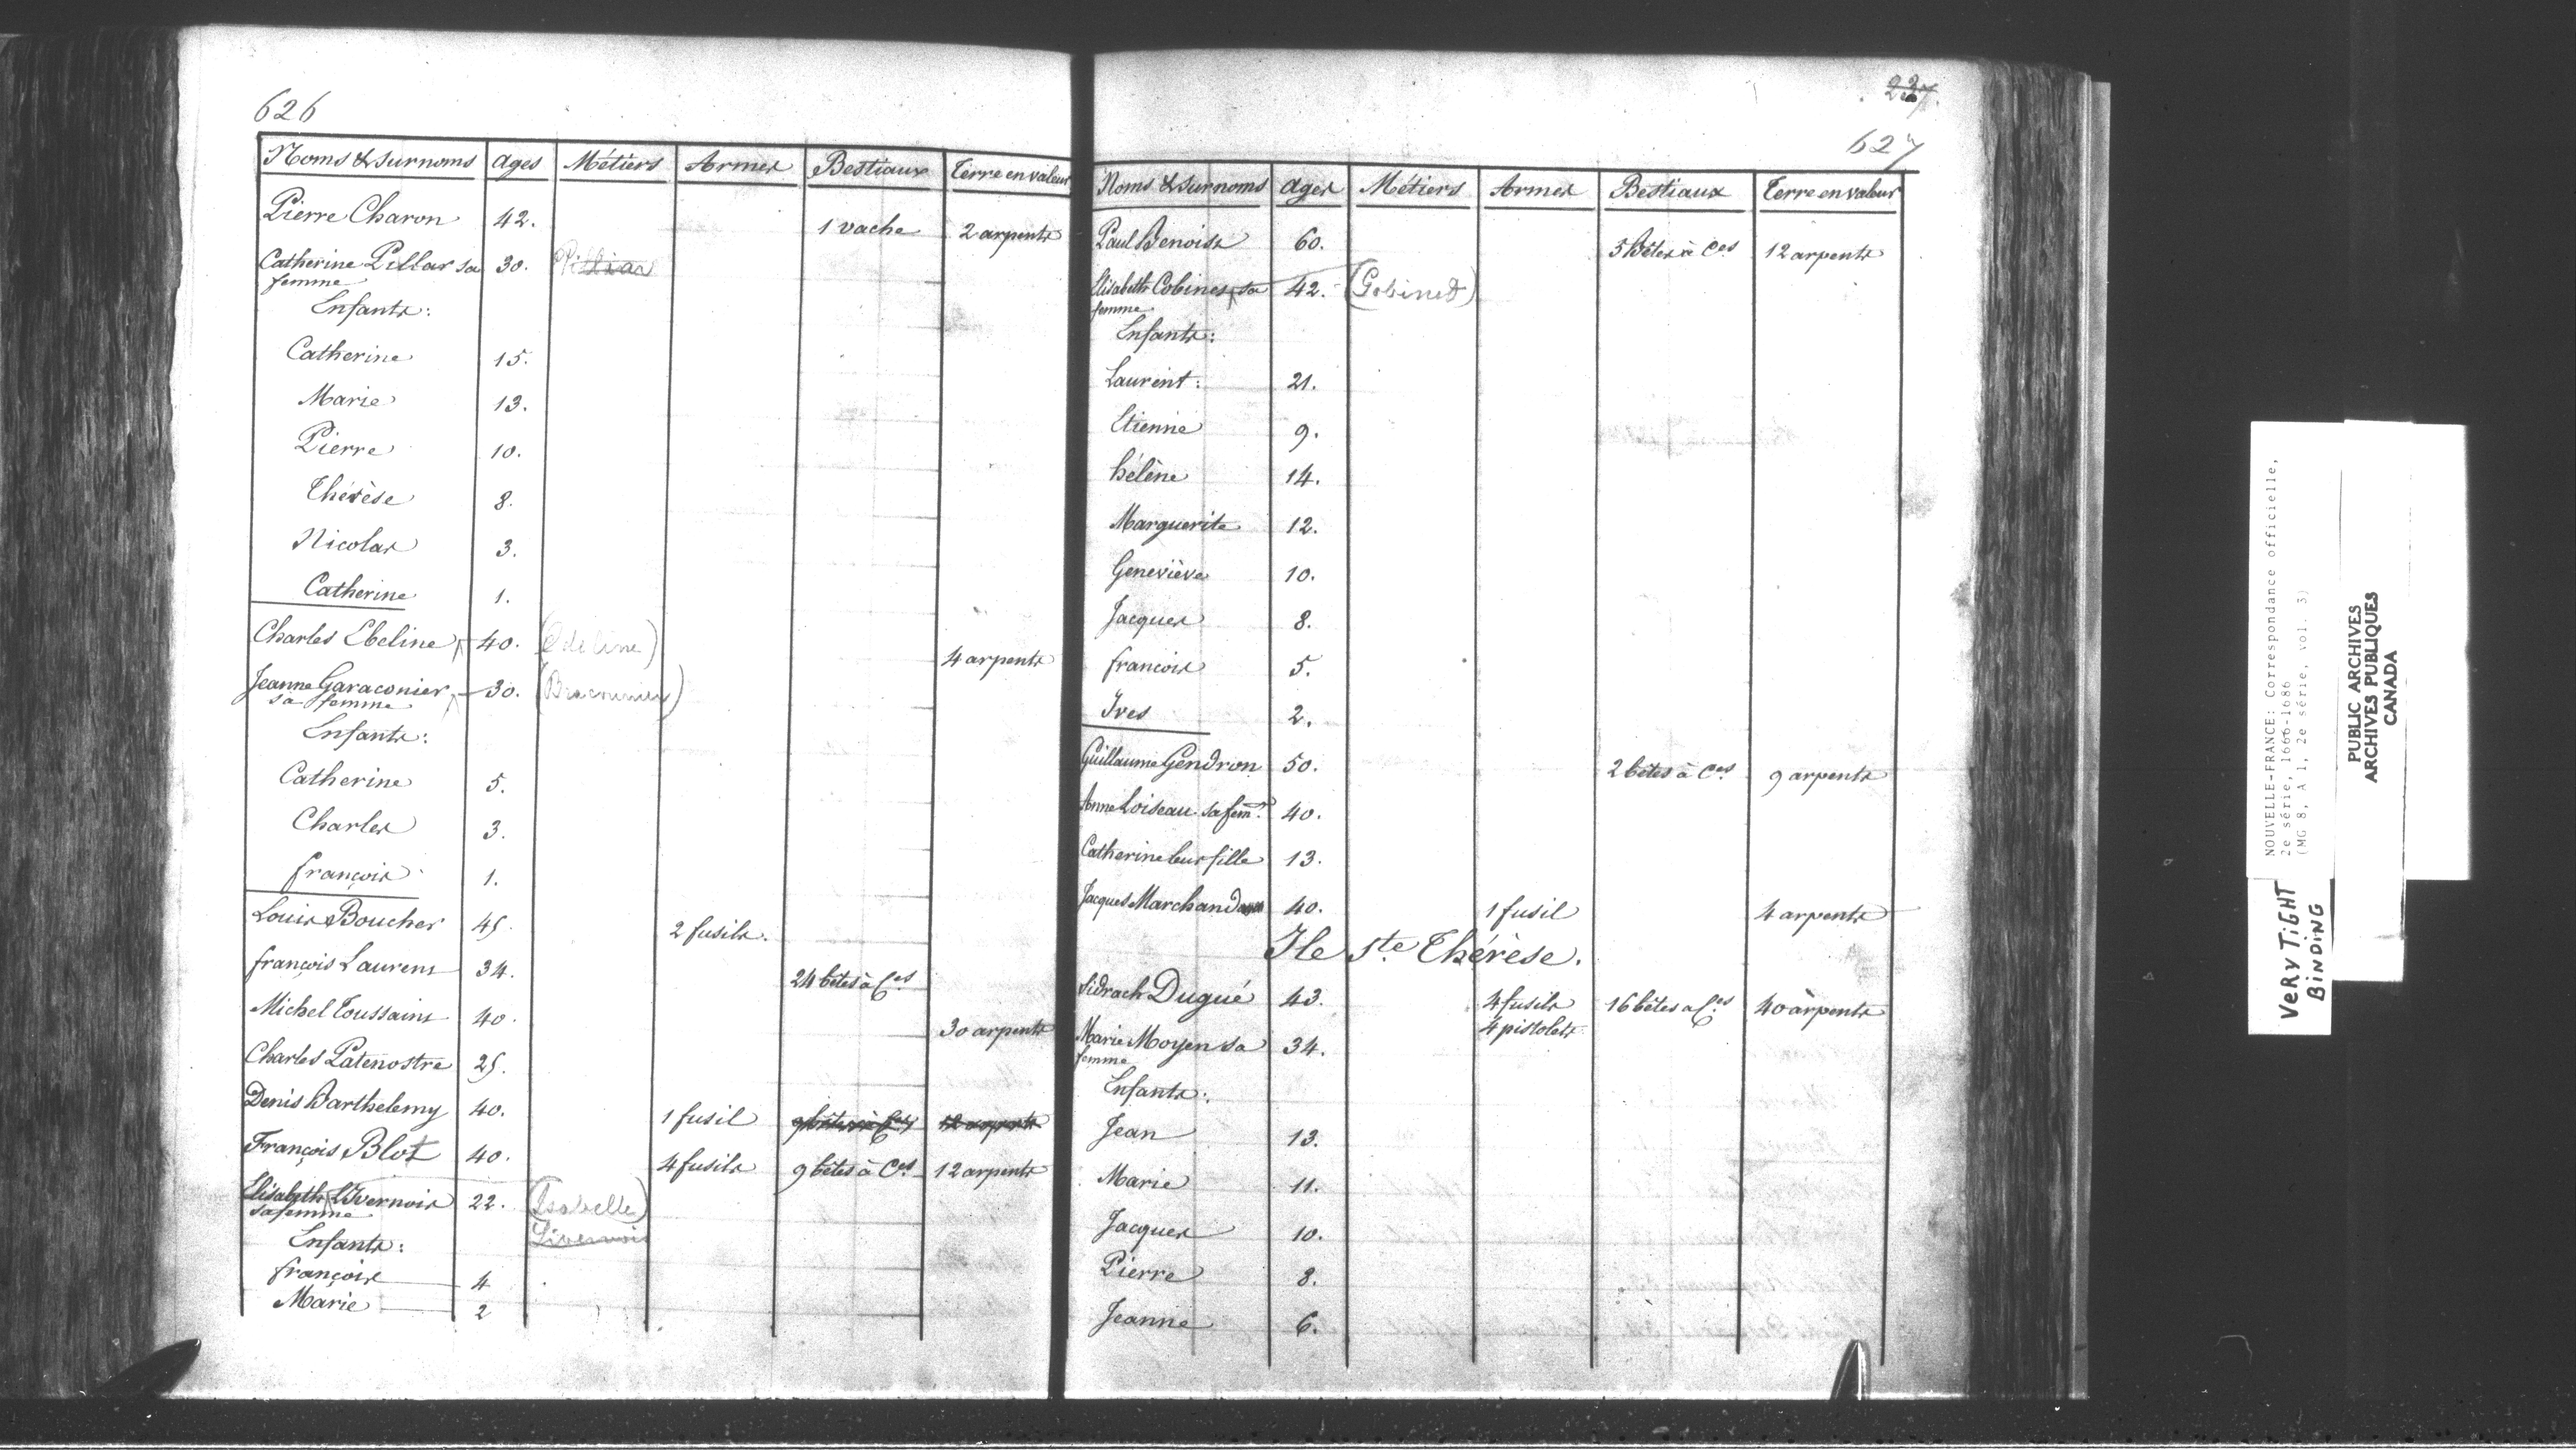 626
Noms & surnoms ages Métiers Armes Bestiaux Terre en valeur
Pierre Charon 42. 1 vache 2 arpents
Catherine Pillar sa 30.
femme
Enfants:
Catherine 15.
Marie 13.
Pierre 10.
Thérèse 8.
Nicolas 3.
Catherine 1.
Charles Ebeline 40. (Edeline) 4 arpents
Jeanne Garaconier 30. (Braconnier)
sa femme
Enfants:
Catherine 5.
Charles 3.
françois 1.
Louis Boucher 45. 2 fusils.
françois Laurent 34. 24 bêtes à Ces
Michel Toussaint 40. 30 arpents
Charles Patenostre 25.
Denis Barthelemy 40. 1 fusil 9 bêtes à Ces 12 arpents
François Blot 40. 4 fusils 9 bêtes à Ces 12 arpents
Elisabeth L'Ivernois 22. (Isabelle)
sa femme Livernois
Enfants:
françois 4
Marie 2
227.
627
Noms & surnoms ages Métiers Armes Bestiaux Terre en valeur
Paul Benoist 60. 5 bêtes à Ces 12 arpents
Elisabeth Cobines, sa 42. (Gobinet)
femme
Enfants:
Laurent: 21.
Etienne 9.
hélène 14.
Marguerite 12.
Geneviève 10.
Jacques 8.
françois 5.
Ives 2.
Guillaume Gendron 50. 2 bêtes à Ces 9 arpents
Anne Loiseau sa fem. 40.
Catherine leur fille 13.
Jacques Marchand 40. 1 fusil 4 arpents
Ile Ste Thérèse.
Sidrach Dugué 43. 4 fusils 16 bêtes a Ces 40 arpents
4 pistolets
Marie Moyen sa 34.
femme
Enfants:
Jean 13.
Marie 11.
Jacques 10.
Pierre 8.
Jeanne 6.
NOUVELLE-FRANCE: Correspondance officielle,
2e série, 1666-1686
(MG 8, A 1, 2e série, vol. 3)
VERY TiGHT
BiNDiNG
PUBLIC ARCHIVES
ARCHIVES PUBLIQUES
CANADA